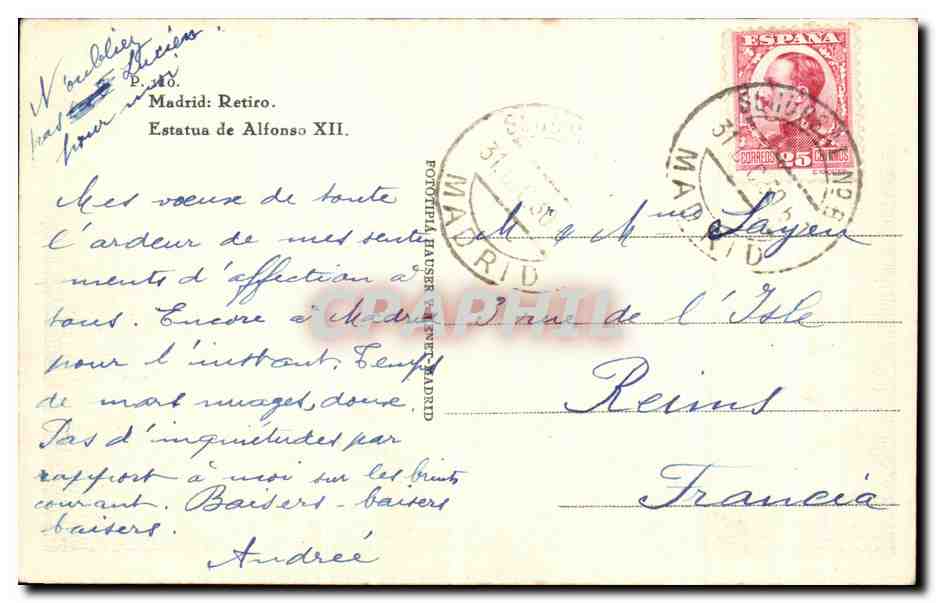 N'oublier
pas Lucien
pour moi
P. 110.
Madrid: Retiro.
Estatua de Alfonso XII.
Mes vœux de toute
l'ardeur de mes senti
ments d'affection à
tous. Encore à Madrid
pour l'instant. Temps
de mars nuages, doux.
Pas d'inquiétudes par
rapport à moi sur les bruits
courant. Baisers - baisers
baisers.
Andreé
FOTOTIPIA HAUSER Y MENET-MADRID
ESPAÑA
CORREOS 25 CENTIMOS
MADRID
31
Nº 8
MADRID
31
M & Mme
3 rue de l'Isle
Reims
Francia
CPAPHIL